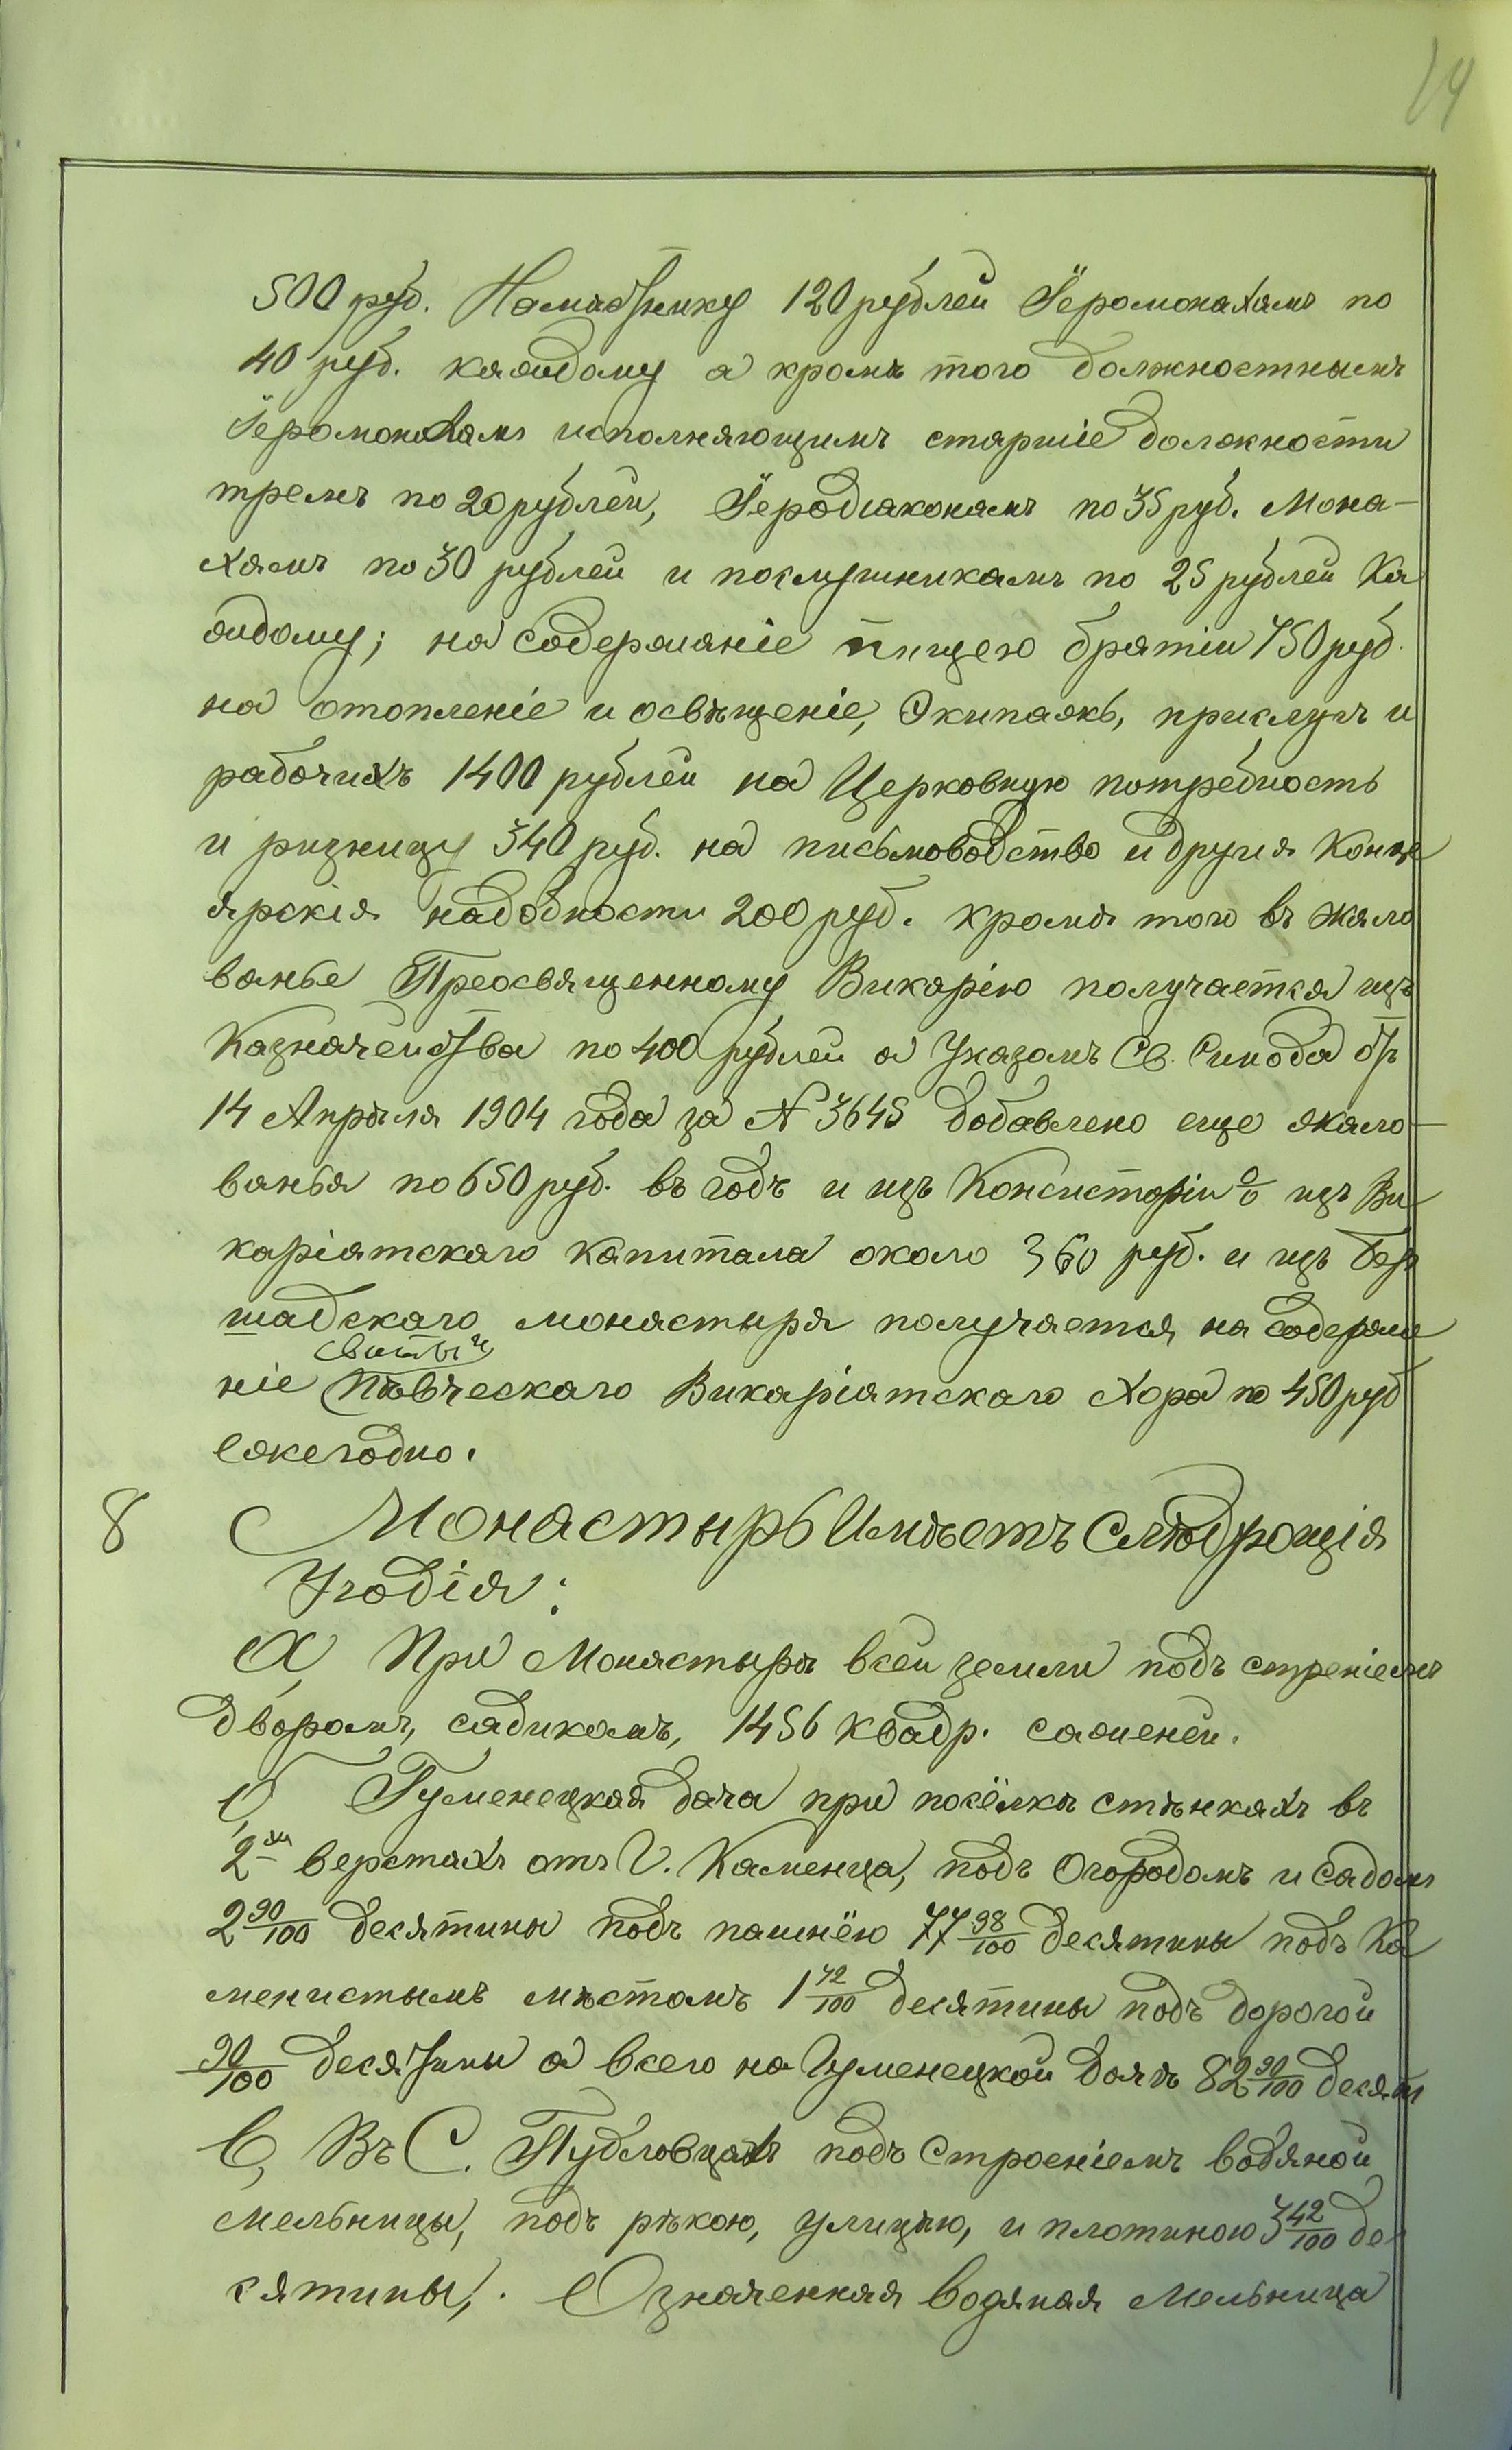 14
500 руб. Намѣстнику 120 рублей Іеромонахамъ по
40 руб. каждому а кромѣ того должностнымъ
Іеромонахамъ исполняющимъ старшіе должности
тремъ по 20 рублей, Іеродіаконамъ по 35 руб. Мона-
хамъ по 30 рублей и послушникамъ по 25 рублей Ка
ждому; на содержаніе пищею братіи 750 руб.
на отопленіе и освѣщеніе, Экипажъ, прислугѣ и
рабочихъ 1400 рублей на Церковную потребность
и ризницу 340 руб. на письмоводство и другія Канце
ярскія надобности 200 руб. кромѣ того въ жало
ванье Преосвященному Викарію получается изъ
Казначейства по 400 рублей а Указомъ Св. Синода отъ
14 Апрѣля 1904 года за № 3645 добавлено еще жало-
ванья по 650 руб. въ годъ и изъ Консисторіи % изъ Ви
каріатскаго капитала около 360 руб. и изъ Бер
шадскаго монастыря получается на содержа
свиты и
ніе Пѣвческаго Викаріатскаго Хора по 450 руб
ежегодно.
8 Монастырь Имѣетъ Слѣдующія
Угодія:
А, При Монастырѣ всей земли подъ строеніемъ
дворомъ, садикомъ, 1456 квадр. саженей.
Б, Гуменецкая дача при посёлкѣ стѣнкахъ въ
2хъ верстахъ отъ Г. Каменца, подъ Огородомъ и садомъ
2 90/100 десятины подъ пашнёю 77 98/100 десятины подъ Ка
менистымъ мѣстомъ 1 12/100 десятины подъ дорогой
90/100 десятины а всего на Гуменецкой дачѣ 82 90/100 десят
В, Въ С. Пудловцахъ подъ строеніемъ водяной
мельницы, подъ рѣкою, улицѣю, и плотиною 3 42/100 де
сятины,. Означенная водяная мельница